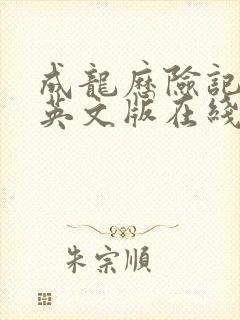 成龍歷險記
英文版在綫
朱宗順